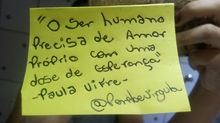 "O Ser humano
Precisa de Amor
Próprio com uma
dose de esperança"
-Paula Vitre-